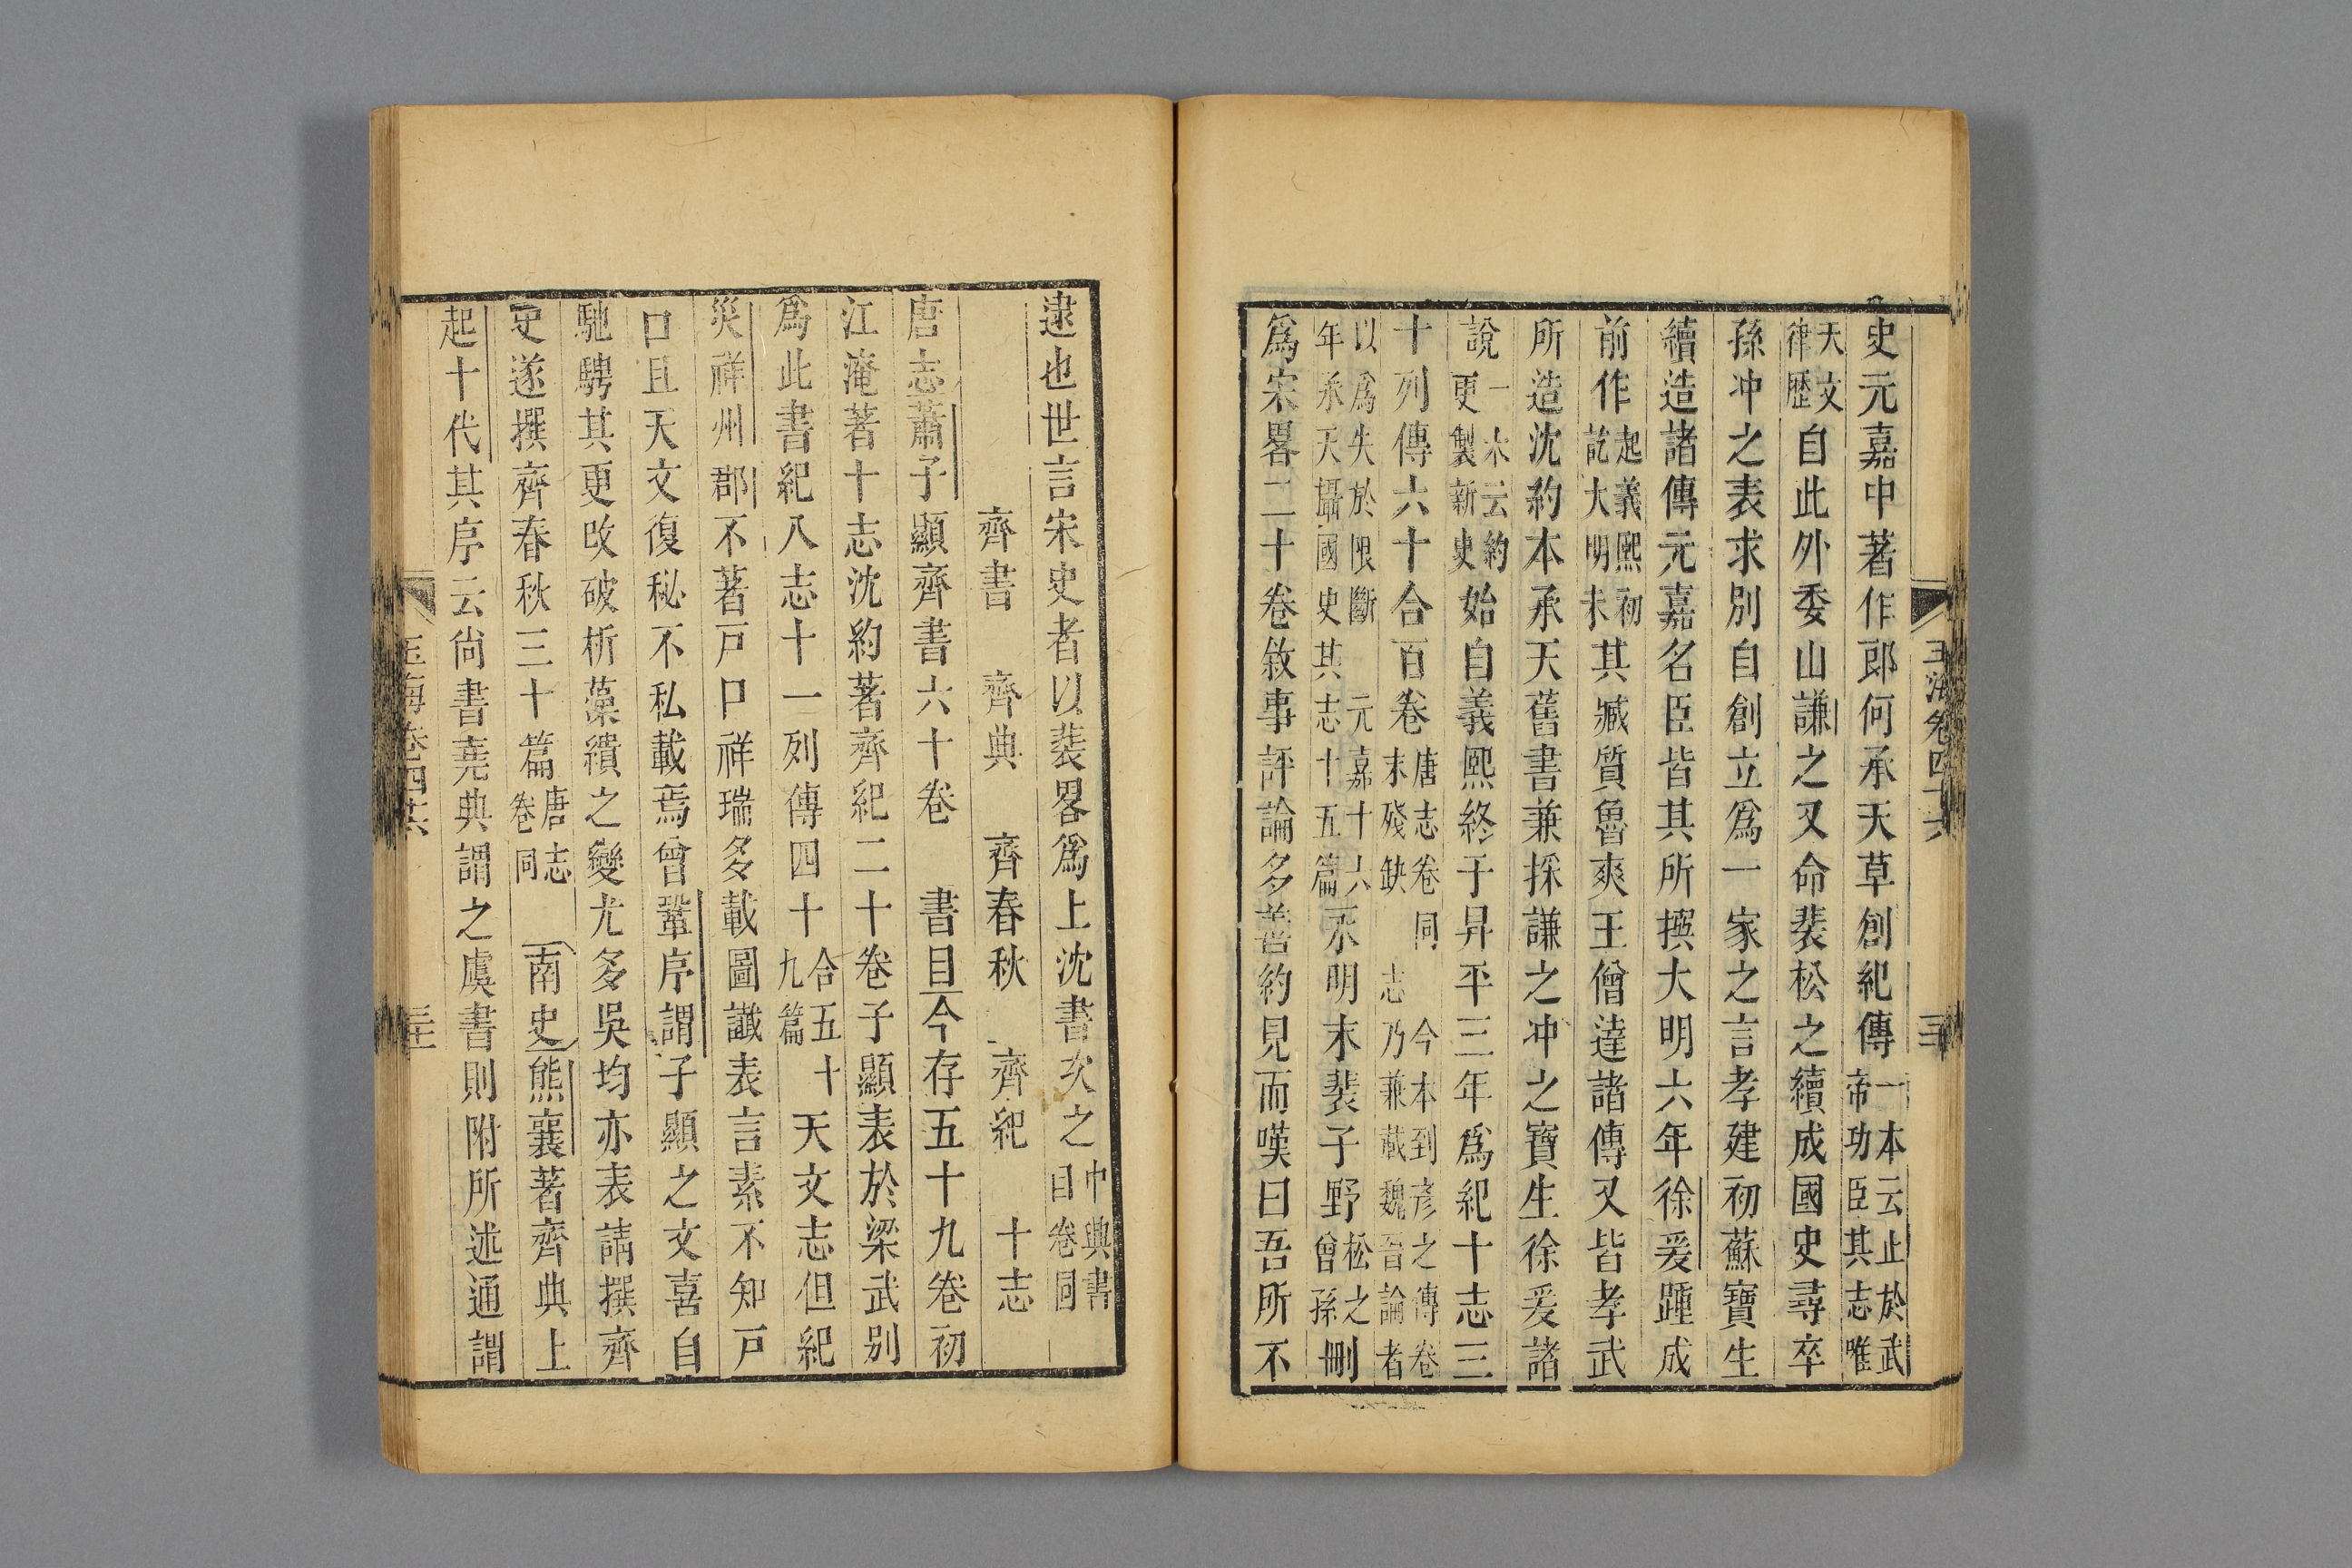 玉海卷四十六
史元嘉中著作郎何承天草創紀傳一本云止於武帝功臣其志唯
天文律歷自此外委山謙之又命裴松之續成國史尋卒
孫冲之表求別自創立爲一家之言孝建初蘇寶生
續造諸傳元嘉名臣皆其所撰大明六年徐爰踵成
前作起義熙初訖大明末其臧質魯爽王僧達諸傳又皆孝武
所造沈約本承天舊書兼採謙之冲之寶生徐爰諸
說一本云約更製新史始自義熙終于昇平三年爲紀十志三
十列傳六十合百卷唐志卷同今本到彦之傳卷末殘缺志乃兼載魏晉論者
以爲失於限斷元嘉十六年承天攝國史其志十五篇永明末裴子野松之曾孫刪
爲宋畧二十卷敘事評論多善約見而嘆曰吾所不
逮也世言宋史者以裴畧爲上沈書次之中興書目卷同
齊書 齊典 齊春秋 齊紀 十志
唐志蕭子顯齊書六十卷 書目今存五十九卷初
江淹著十志沈約著齊紀二十卷子顯表於梁武別
爲此書紀八志十一列傳四十合五十九篇天文志但紀
災祥州郡不著戸口祥瑞多載圖讖表言素不知戸
口且天文復秘不私載焉曾鞏序謂子顯之文喜自
馳騁其更改破析藻繢之變尤多吳均亦表請撰齊
史遂撰齊春秋三十篇唐志卷同 南史熊襄著齊典上
起十代其序云尙書堯典謂之虞書則附所述通謂
玉海卷四十六